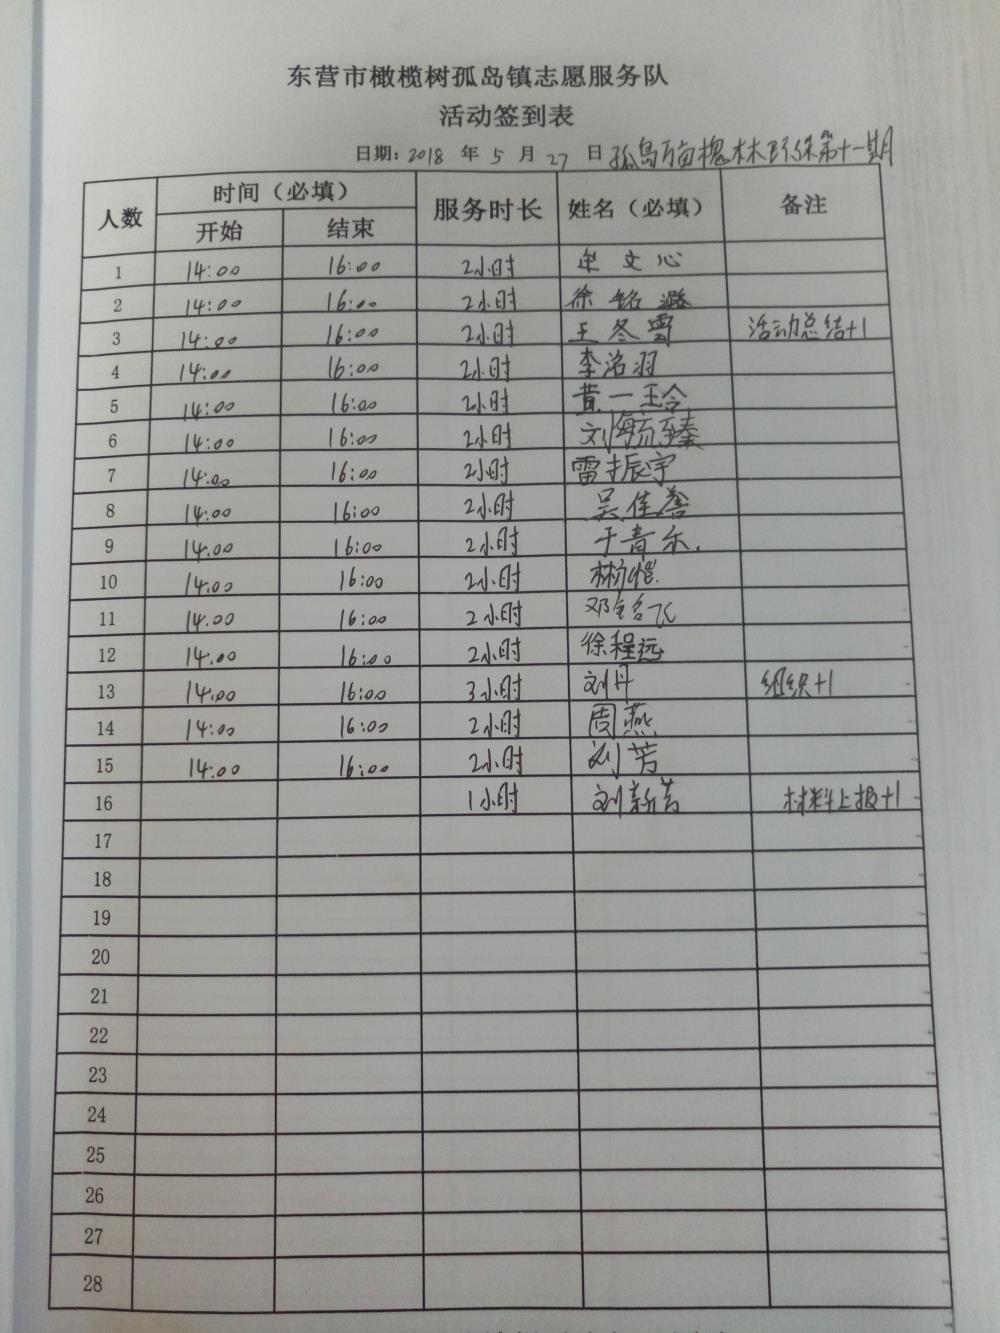 东营市橄榄树孤岛镇志愿服务队
活动签到表
日期: 2018 年 5 月 27 日 孤岛万亩槐林环保第十一期
人数 时间（必填） 服务时长 姓名（必填） 备注
开始 结束
1 14:00 16:00 2小时 文心
2 14:00 16:00 2小时 徐铭潞
3 14:00 16:00 2小时 王冬雪 活动总结+1
4 14:00 16:00 2小时 李洛羽
5 14:00 16:00 2小时 黄一琀
6 14:00 16:00 2小时 刘
7 14:00 16:00 2小时 雷振宇
8 14:00 16:00 2小时 吴佳誉
9 14:00 16:00 2小时 于青禾.
10 14:00 16:00 2小时 林恺
11 14:00 16:00 2小时 邓铭飞
12 14:00 16:00 2小时 徐程远
13 14:00 16:00 3小时 刘丹 组织+1
14 14:00 16:00 2小时 周燕
15 14:00 16:00 2小时 刘芳
16 1小时 刘新芳 材料上报+1
17
18
19
20
21
22
23
24
25
26
27
28